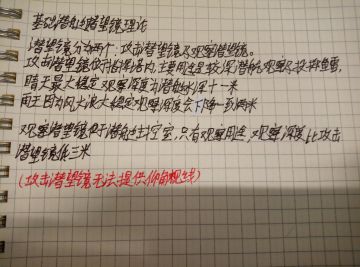 基础潜艇潜望镜理论
潜望镜分为两个:攻击潜望镜及观察潜望镜。
攻击潜望镜位于指挥塔内,主要用途是较深潜航观察及投弹鱼雷,
晴天最大稳定观察深度为潜航水深十一米
雨天因为风大浪大稳定观察深度会下降一到两米
观察潜望镜位于潜艇主控室,只有观察用途,观察深度比攻击
潜望镜低三米
(攻击潜望镜无法提供仰角视线)